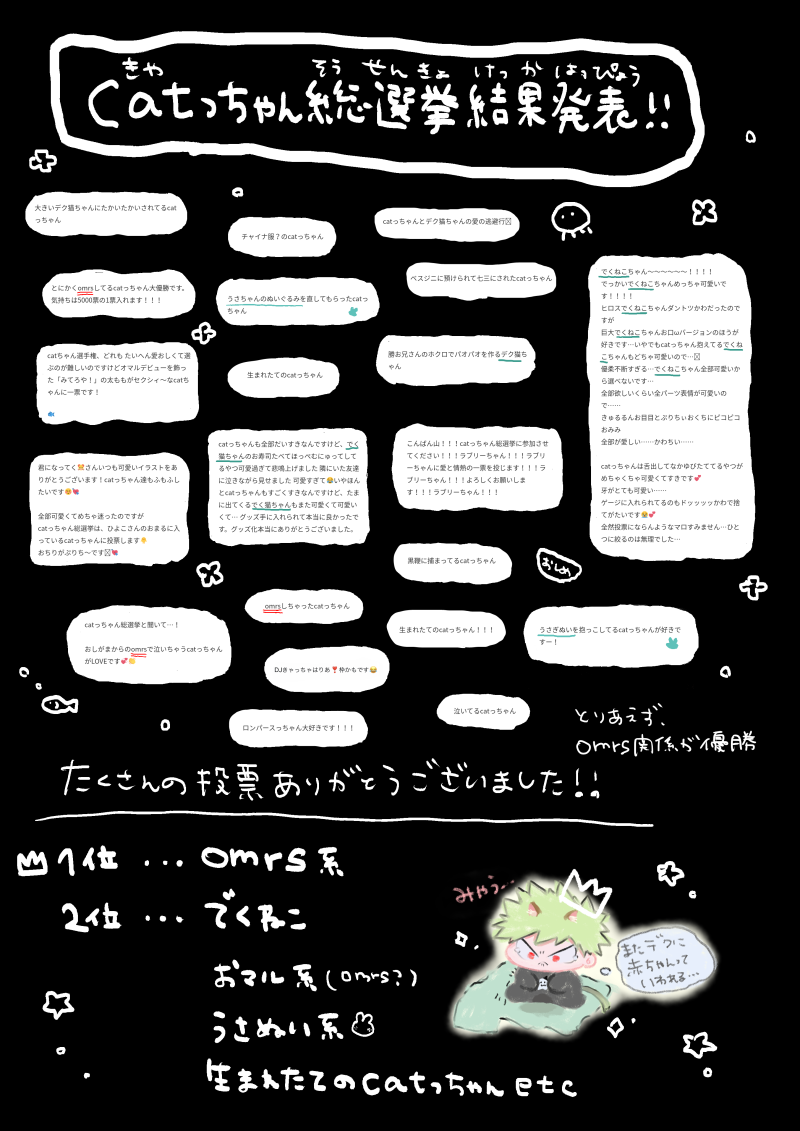 きや そう せんきょ けっか はっぴょう
Catっちゃん総選挙結果発表!!
大きいデク猫ちゃんにたかいたかいされてるcat
っちゃん
チャイナ服？のcatっちゃん
catっちゃんとデク猫ちゃんの愛の逃避行
とにかくomrsしてるcatっちゃん大優勝です。
気持ちは5000票の1票入れます！！！
うさちゃんのぬいぐるみを直してもらったcatっ
ちゃん
ベスジニに預けられて七三にされたcatっちゃん
catちゃん選手権、どれも たいへん愛おしくて選
ぶのが難しいのですけどオマルデビューを飾っ
た「みてろや！」の太ももがセクシィ〜なcatち
ゃんに一票です！
🐟
生まれたてのcatっちゃん
勝お兄さんのホクロでパオパオを作るデク猫ち
ゃん
でくねこちゃん〜〜〜〜〜〜！！！！
でっかいでくねこちゃんめっちゃ可愛いで
す！！！！
ヒロスでくねこちゃんダントツかわだったので
すが
巨大でくねこちゃんお口ωバージョンのほうが
好きです…いやでもcatっちゃん抱えてるでくね
こちゃんもどちゃ可愛いので…
優柔不断すぎる…でくねこちゃん全部可愛いか
ら選べないです…
全部欲しいくらい全パーツ表情が可愛いの
で……
きゅるるんお目目とぷりちぃおくちにピコピコ
おみみ
全部が愛しい……かわちい……
catっちゃんは舌出してなかゆびたててるやつが
めちゃくちゃ可愛くてすきです💕
牙がとても可愛い……
ゲージに入れられてるのもドゥッッッかわで捨
てがたいです😢💕
全然投票にならんようなマロすみません…ひと
つに絞るのは無理でした…
君になってくさんいつも可愛いイラストをあ
りがとうございます！catっちゃん達もふもふし
たいです😍💘
全部可愛くてめちゃ迷ったのですが
catっちゃん総選挙は、ひよこさんのおまるに入
っているcatっちゃんに投票します🐥
おちりがぷりち〜です💘
catっちゃんも全部だいすきなんですけど、でく
猫ちゃんのお寿司たべてほっぺむにゅってして
るやつ可愛過ぎて悲鳴上げました 隣にいた友達
に泣きながら見せました 可愛すぎて😂いやほん
とcatっちゃんもすごくすきなんですけど、たま
に出てくるでく猫ちゃんもまた可愛くて可愛い
くて… グッズ手に入れられて本当に良かったで
す。グッズ化本当にありがとうございました。
こんばん山！！！catっちゃん総選挙に参加させ
てください！！！ラブリーちゃん！！！ラブリ
ーちゃんに愛と情熱の一票を投じます！！！ラ
ブリーちゃん！！！よろしくお願いしま
す！！！ラブリーちゃん！！！
黒鞭に捕まってるcatっちゃん
おしゃめ
omrsしちゃったcatっちゃん
生まれたてのcatっちゃん！！！
catっちゃん総選挙と聞いて…！
おしがまからのomrsで泣いちゃうcatっちゃん
がLOVEです💕👏
うさぎぬいを抱っこしてるcatっちゃんが好きで
すー！
DJきゃっちゃはりあ❣️枠かもです😂
泣いてるcatっちゃん
ロンパースっちゃん大好きです！！！
とりあえず、
omrs関係が優勝
たくさんの投票ありがとうございました!!
1位 ... omrs系
2位 ... でくねこ
おマル系(omrs?)
うさぬい系
生まれたてのcatっちゃん etc
みゃう…
またデクに
赤ちゃんって
いわれる…